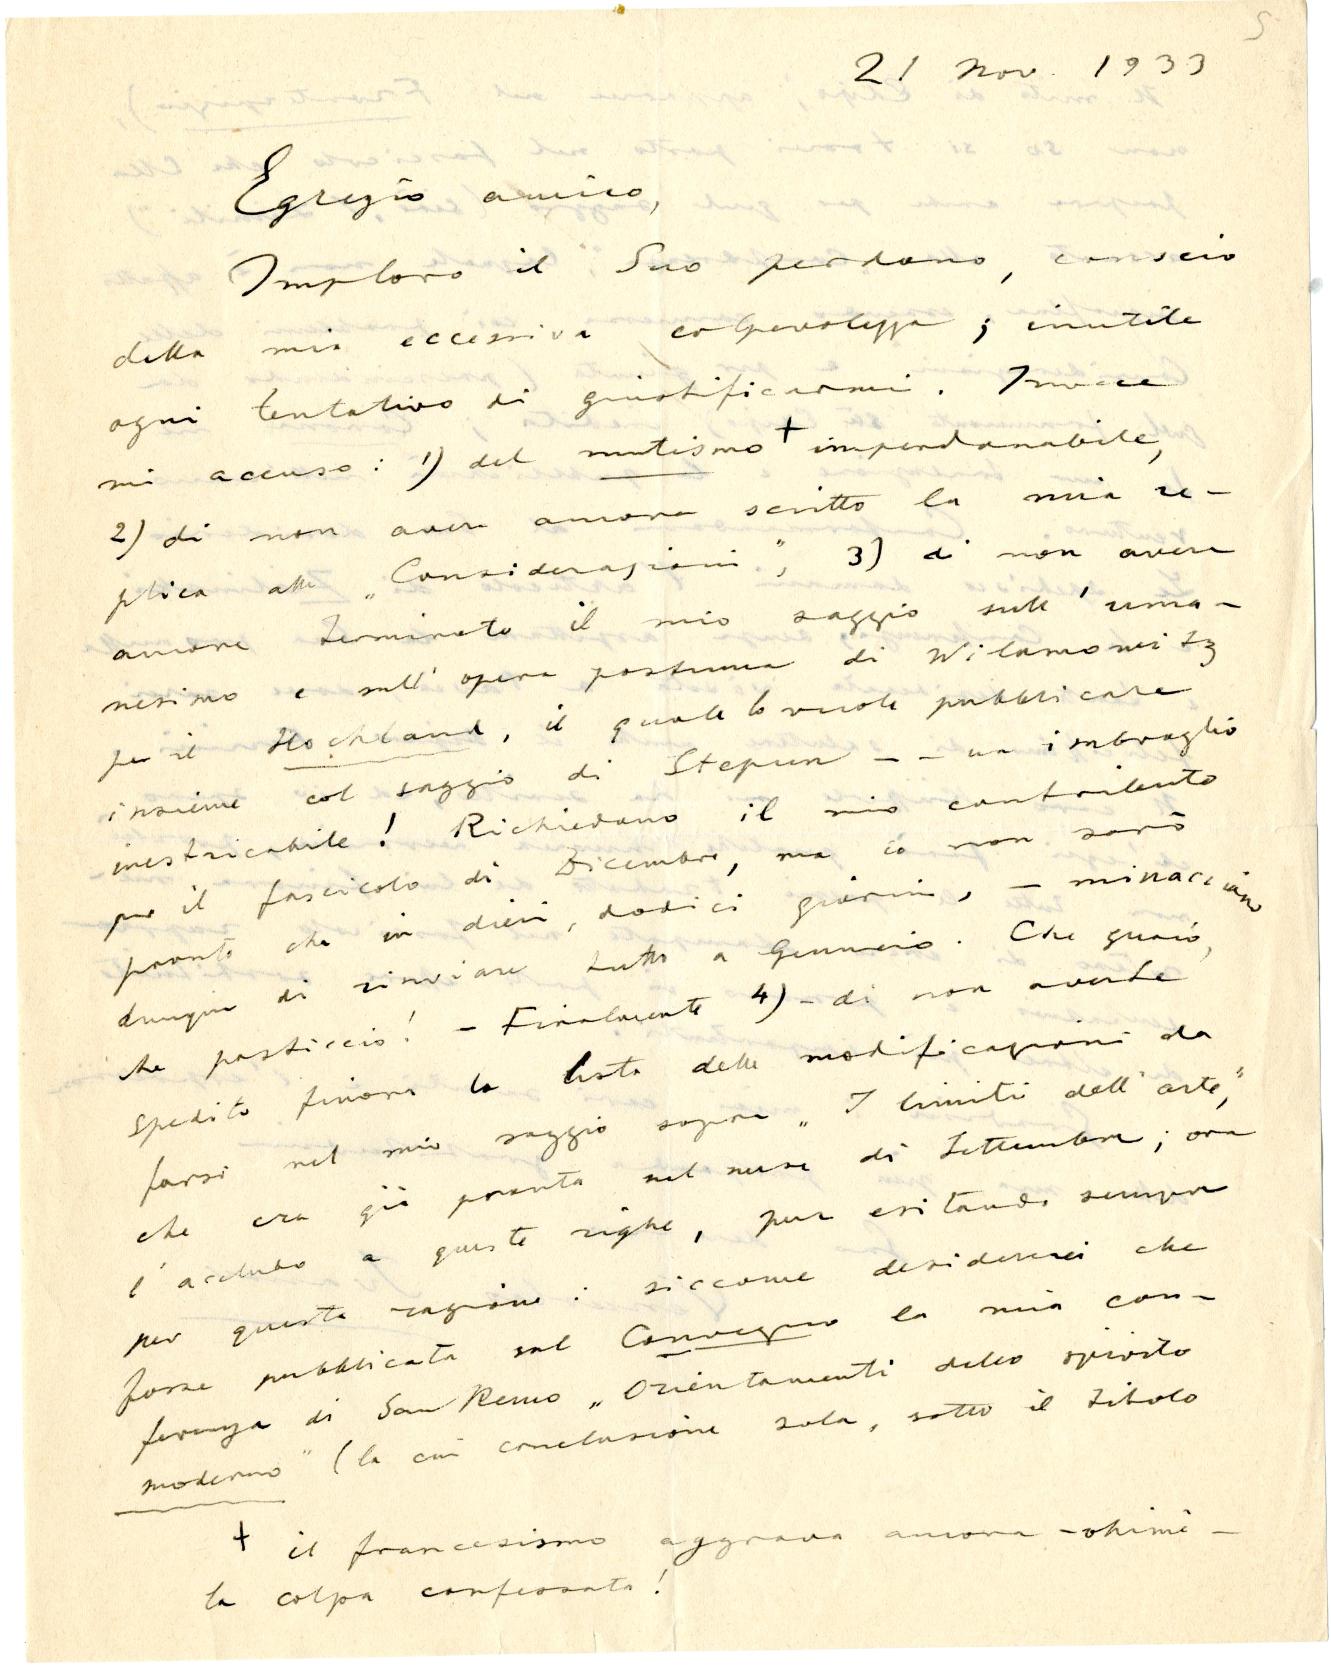 5
21 Nov. 1933
Egregio amico,
Imploro il Suo perdono, conscio
della mia eccessiva colpevolezza; inutile
ogni tentativo di giustificarmi. Invece
mi accuso: 1) del mutismo + imperdonabile,
2) di non avere ancora scritto la mia re-
plica alle „Considerazioni", 3) di non avere
ancora terminato il mio saggio sull'uma-
nesimo e sull'opera postuma di Wilamowitz
per il Hochland, il quale lo vuole pubblicare
insieme col saggio di Stepun -- un imbroglio
inestricabile! Richiedono il mio contributo
per il fascicolo di Dicembre, ma io non sarò
pronto che in dieci, dodici giorni, - minacciano
dunque di rinviare tutto a Gennaio. Che guaio,
che pasticcio! - Finalmente 4) - di non averLe
spedito finora la lista delle modificazioni da
farsi nel mio saggio sopra „I limiti dell'arte",
che era già pronta nel mese di Settembre; ora
l'accludo a queste righe, pur esitando sempre
per questa ragione: siccome desidererei che
fosse pubblicata sul Convegno la mia con-
ferenza di San Remo „Orientamenti dello spirito
moderno" (la cui conclusione sola, sotto il titolo
+ il francesismo aggrava ancora - ohimè -
la colpa confessata!